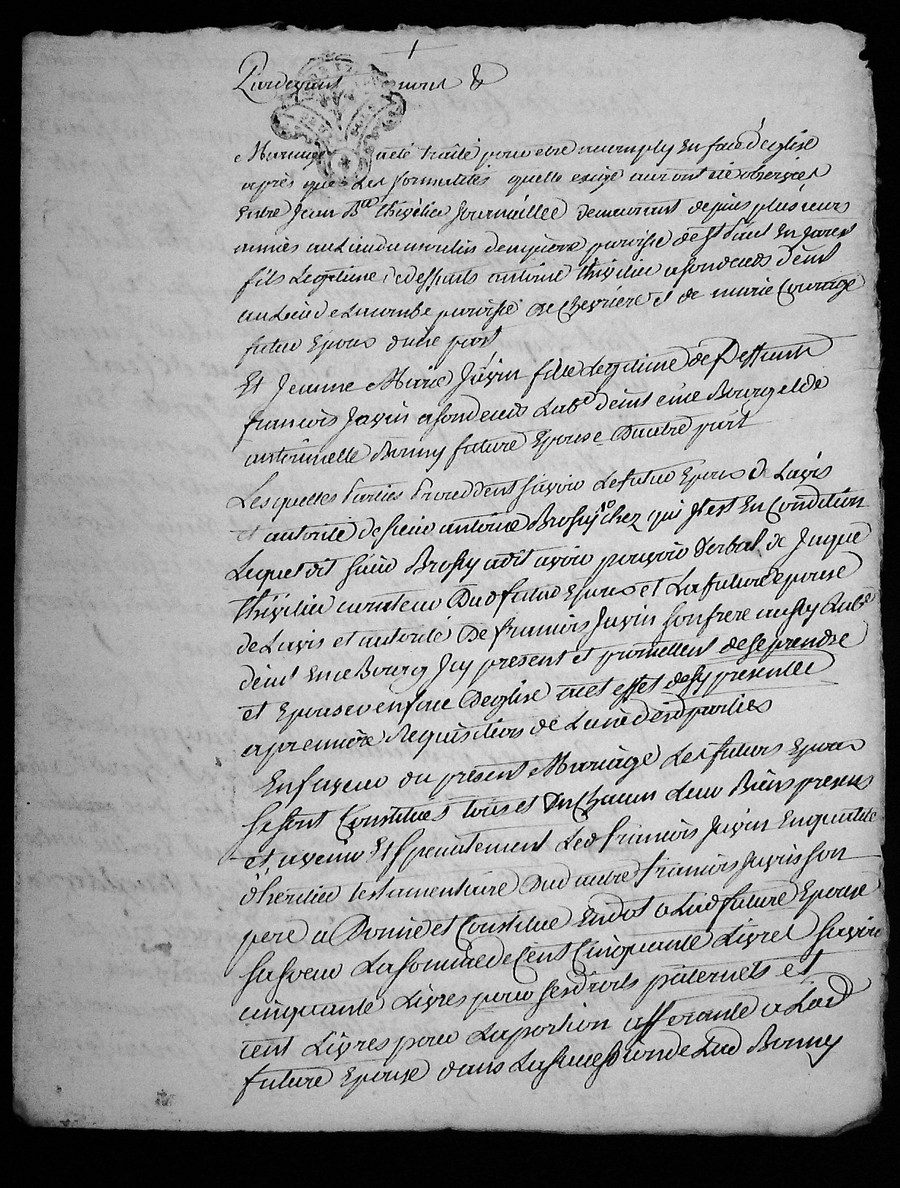 Pardevant nore &
Mariage a été traité pour etre accomply En face d'eglise
après que Les formalités quelle exige auront été observées
Entre Jean Bte thivélier Journaillier demeurant depuis plusieurs
années au Lieu du moulin paroisse de St Paul En Jarest
fils Legitime de deffunts antoine thivilier a fondeurs
au Lieu de Lacombe paroisse de Chevriere et de marie Couragé
futur Epoux d'une part
Et Jeanne Marie Javin fille Legitime de Deffunts
francois Javin Labr en ce Bourg et de
antoinette Bonny future Epouse Dautre part
Lesquelles parties procedent savoir Le futur Epoux de Lavis
et autorité de sieur antoine Brossy chez qui Jl est En Condition
Lequel dit sieur Brossy a dit avoir pouvoir Verbal de Jaque
thivilier curateur Dud futur Epoux et La future Epouse
de Lavis et autorité de francois Javin son frere aussy Labr
en ce Bourg Jcy present et promettent de se prendre
et Epouser en face Deglise a cet effet de sy presenter
a premiere Requisition de Lune desd parties
En faveur du present Mariage Les futurs Epoux
se sont Constitués tous et Un Chacun Leurs Biens presens
et avenir Et specialement Led francois Javin En qualité
d'heritier testamentaire Dud autre francois Javin son
pere a Donné et Constitué En dot a Lad future Epouse
sa soeur La somme de Cent Cinquante Livres savoir
cinquante Livres pour ses droits paternels et
cent Livres pour La portion afferante a Lad
future Epouse dans La succession de Lad Bonny